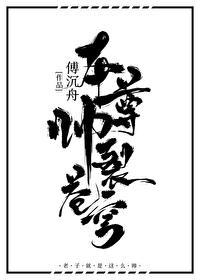 傅沉舟
[作品]
至尊帅裂苍穹
·老·子·就·是·这·么·帅·